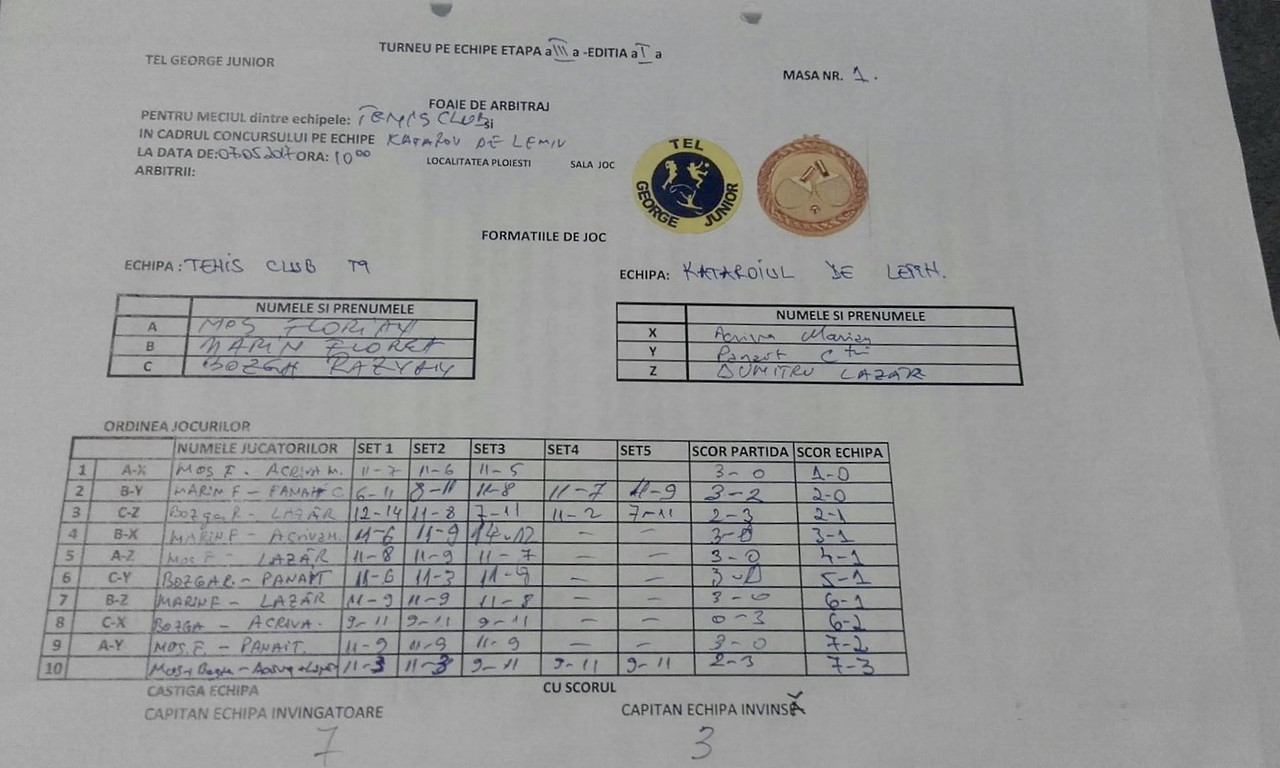 TURNEU PE ECHIPE ETAPA a III a -EDITIA a I a
TEL GEORGE JUNIOR
MASA NR. 1.
FOAIE DE ARBITRAJ
PENTRU MECIUL dintre echipele: TENIS CLUB si
IN CADRUL CONCURSULUI PE ECHIPE DE LEMN
LA DATA DE: 07.05.2017 ORA: 10 00 LOCALITATEA PLOIESTI SALA JOC
ARBITRII:
TEL
GEORGE JUNIOR
FORMATIILE DE JOC
ECHIPA: TENIS CLUB T9
ECHIPA: KATAROIUL DE LEMN.
NUMELE SI PRENUMELE
A MOS FLORIAN
B MARIN FLOREA
C BOZGA RAZVAN
NUMELE SI PRENUMELE
X Acriva Marian
Y Panait C-tin
Z DUMITRU LAZĂR
ORDINEA JOCURILOR
NUMELE JUCATORILOR SET 1 SET2 SET3 SET4 SET5 SCOR PARTIDA SCOR ECHIPA
1 A-X MOS F. - ACRIVA M. 11-7 11-6 11-5 3-0 1-0
2 B-Y MARIN F - PANAIT C 6-11 8-11 11-8 11-7 11-9 3-2 2-0
3 C-Z BOZGA R - LAZĂR 12-14 11-8 7-11 11-2 7-11 2-3 2-1
4 B-X MARIN F - ACRIVA M. 11-6 11-9 14-12 - - 3-0 3-1
5 A-Z MOS F - LAZĂR 11-8 11-9 11-7 - - 3-0 4-1
6 C-Y BOZGA R. - PANAIT 11-6 11-3 11-9 - - 3-0 5-1
7 B-Z MARIN F - LAZĂR 11-9 11-9 11-8 - - 3-0 6-1
8 C-X BOZGA - ACRIVA. 9-11 9-11 9-11 - - 0-3 6-2
9 A-Y MOS. F. - PANAIT. 11-9 11-9 11-9 - - 3-0 7-2
10 Mos + Bozga - Acriva + 11-3 11-3 9-11 9-11 9-11 2-3 7-3
CASTIGA ECHIPA CU SCORUL
CAPITAN ECHIPA INVINGATOARE CAPITAN ECHIPA INVINSĂ
7 3